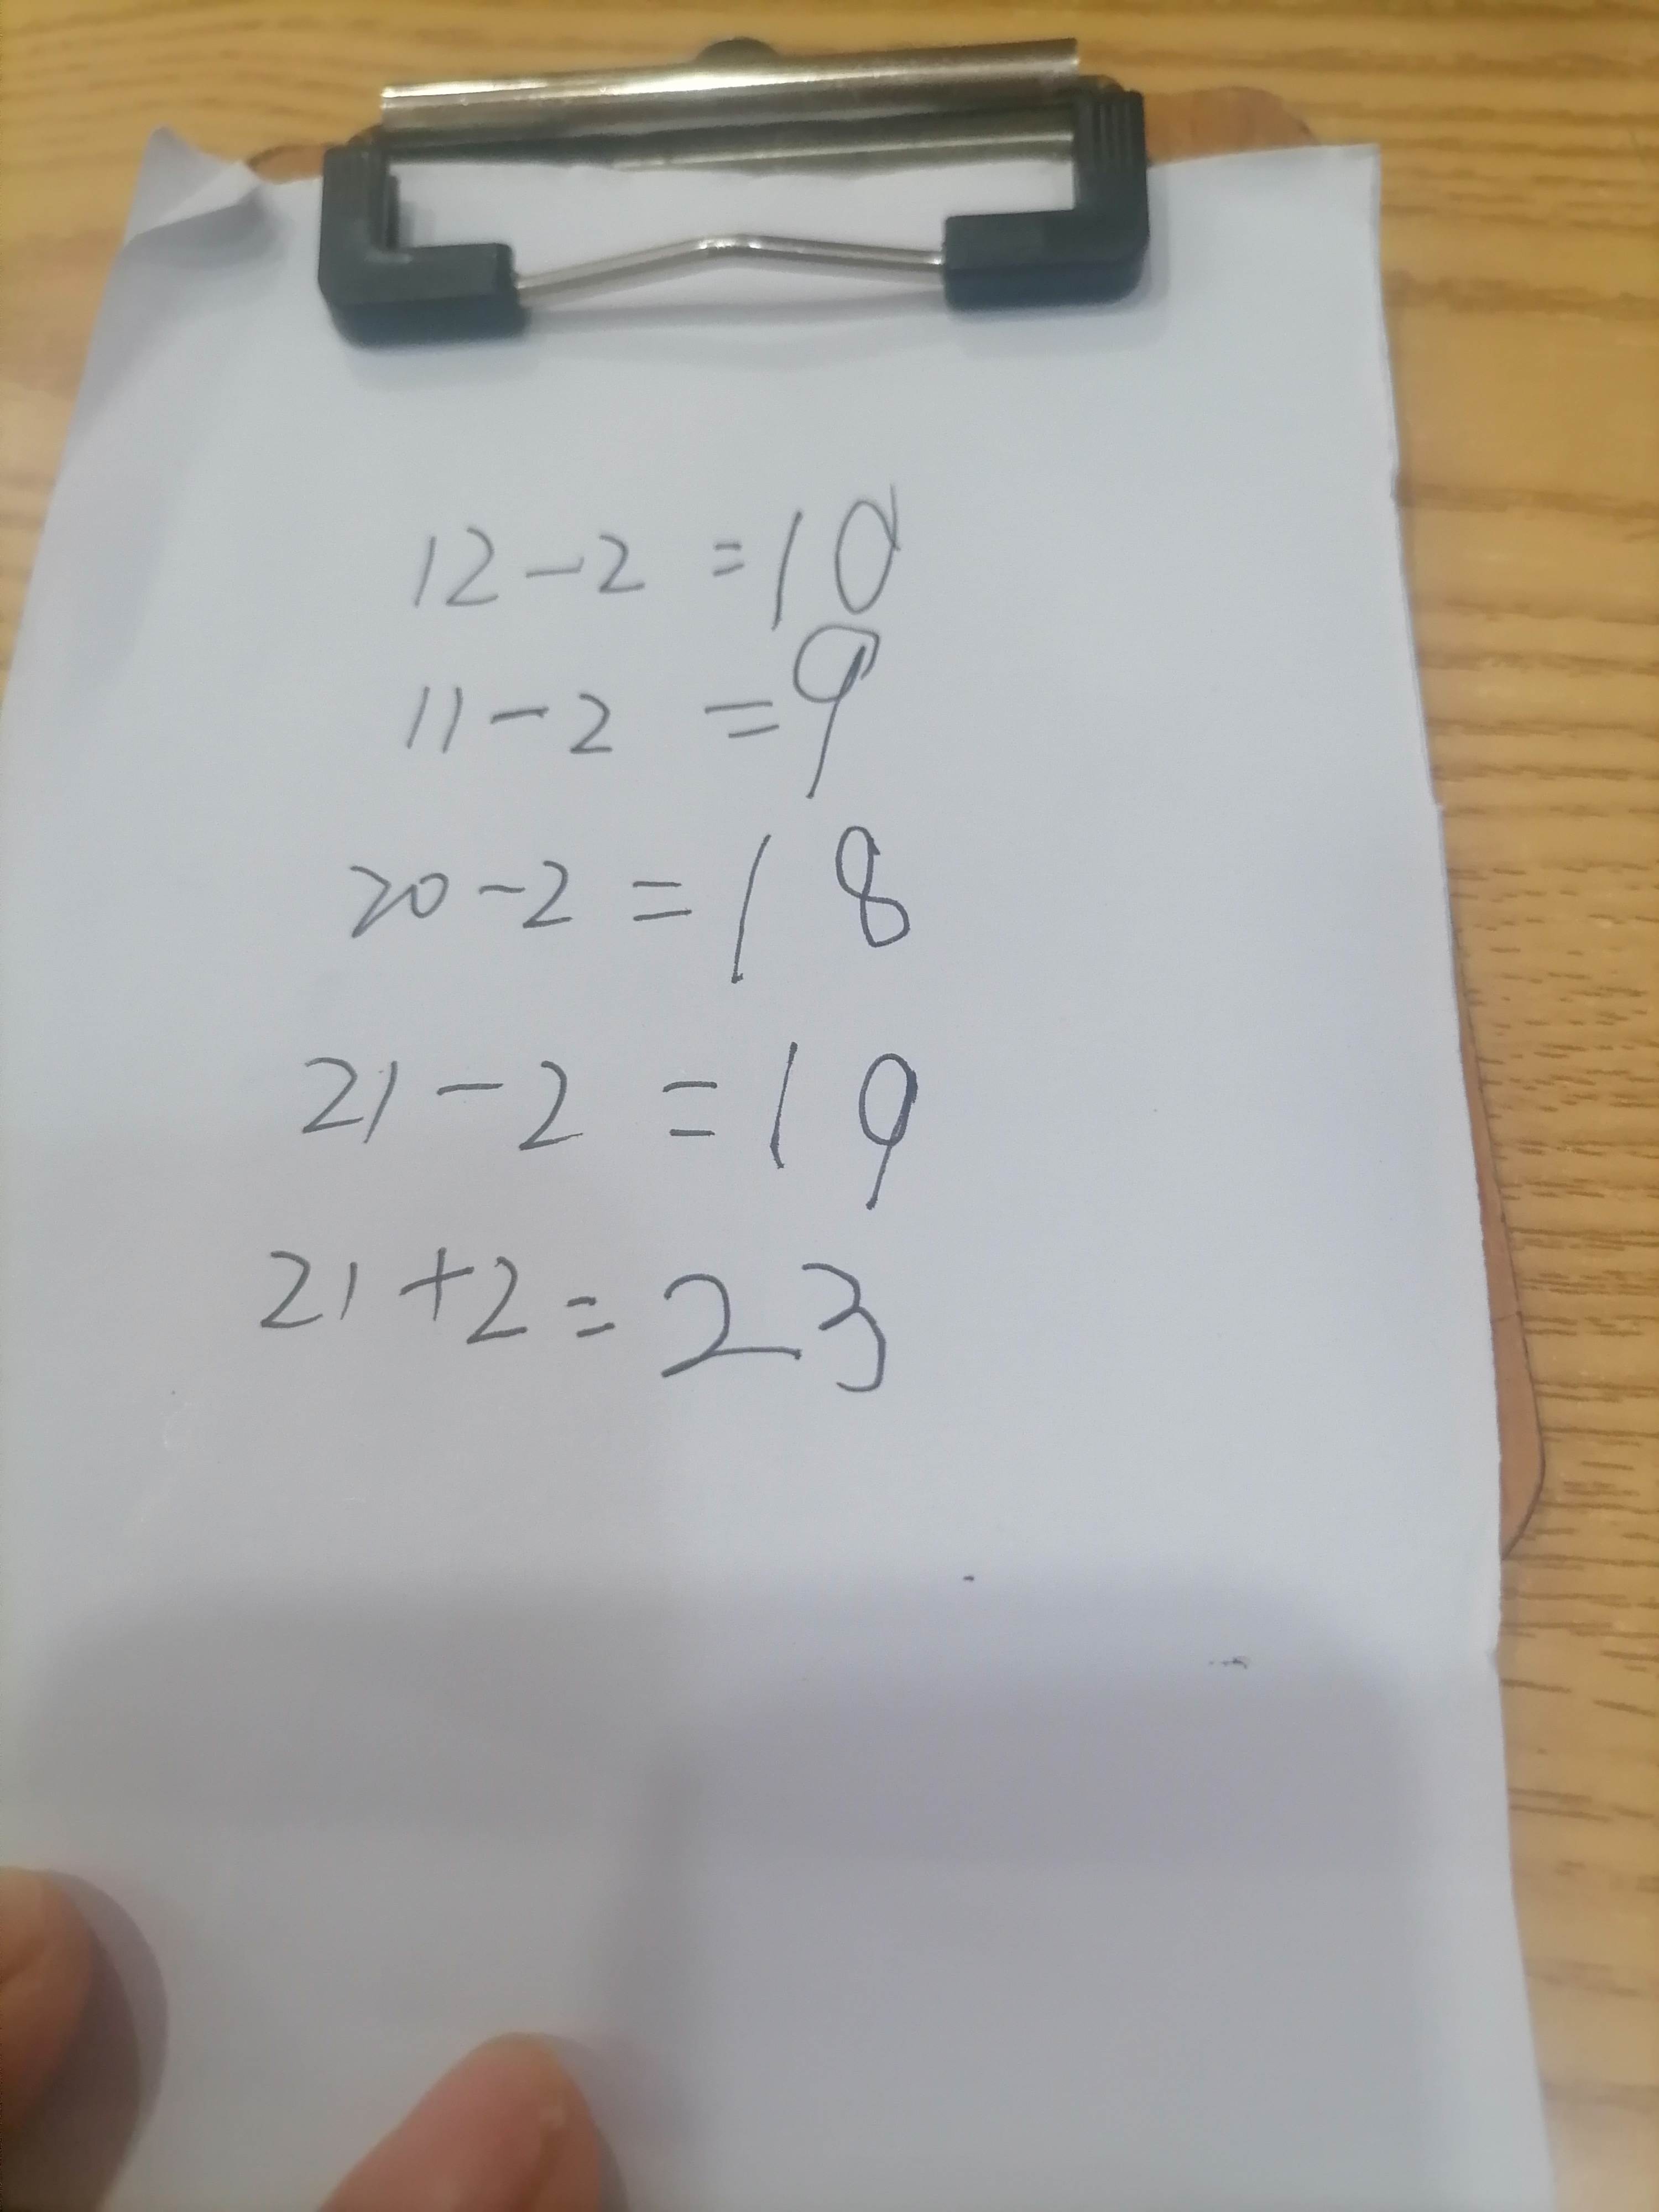 12-2=10
11-2=9
20-2=18
21-2=19
21+2=23